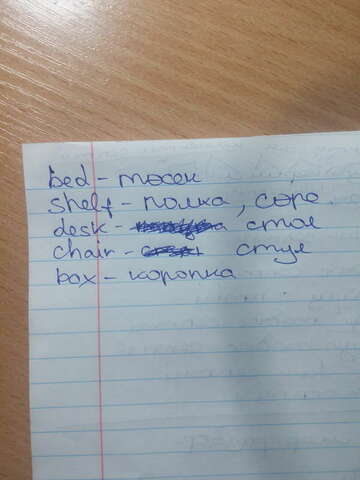 bed - төсек
shelf - полка, сөре
desk - стол
chair - стул
box - коропка